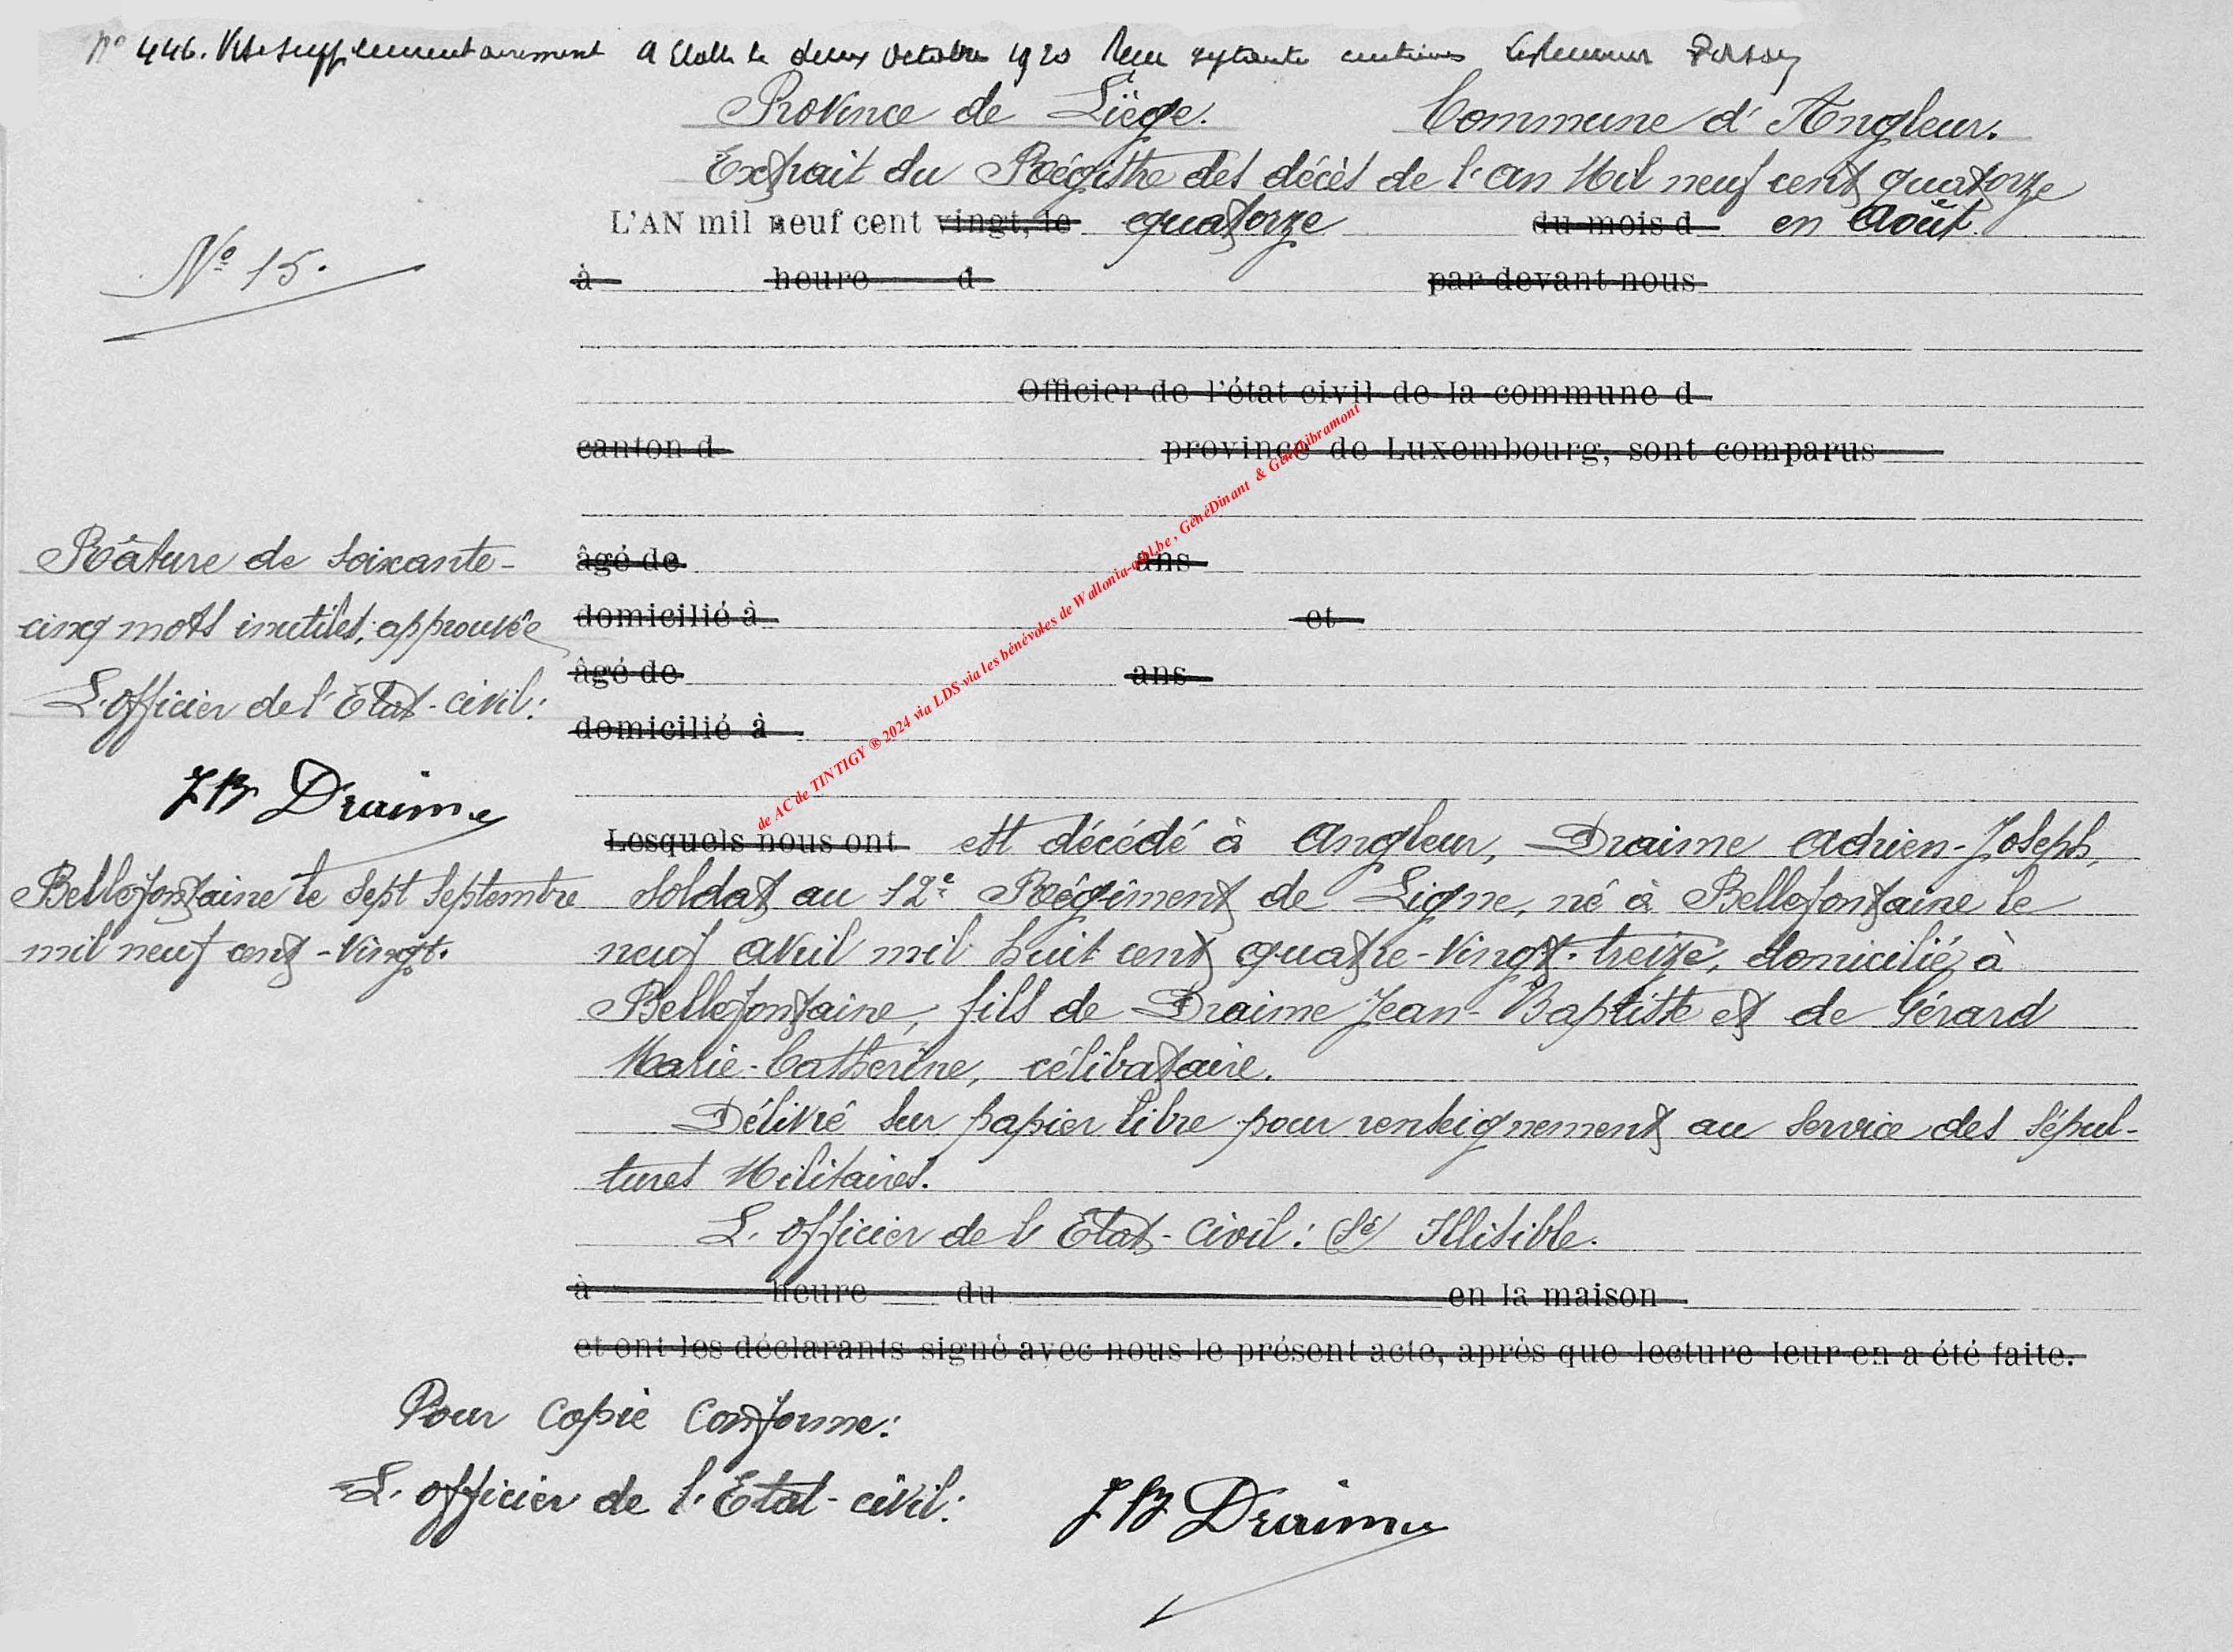 N° 446. Visé supplémentairement à Etalle le deux octobre 1920 Reçu septante centimes Le Receveur
Province de Liège. Commune d'Angleur.
Extrait du Régistre des décès de l'an Mil neuf cent quatorze
L'AN mil neuf cent vingt, le quatorze du mois d en Août.
N° 15.
à heure d par devant nous
Officier de l'état civil de la commune d
canton d province de Luxembourg, sont comparus
Râture de soixante-
cinq mots inutiles, approuvée
L'officier de l'Etat-civil:
JB Draime
âgé de ans
domicilié à et
âgé de ans
domicilié à
de AC de TINTIGY ® 2024 via LDS via les bénévoles de Wallonia-asbl.be, GénéDinant & GénéLibramont
Lesquels nous ont est décédé à Angleur, Draime Adrien-Joseph,
Bellefontaine le sept septembre
mil neuf cent-vingt.
soldat au 12e Régiment de Ligne, né à Bellefontaine le
neuf avril mil huit cent quatre-vingt-treize, domicilié à
Bellefontaine, fils de Draime Jean-Baptiste et de Gérard
Marie-Catherine, célibataire.
Délivré sur papier libre pour renseignement au service des sépul-
tures Militaires.
L'officier de l'Etat-civil: (Sé) Illisible.
à heure du en la maison
et ont les déclarants signé avec nous le présent acte, après que lecture leur en a été faite.
Pour copie conforme:
L'officier de l'Etat-civil: JB Draime